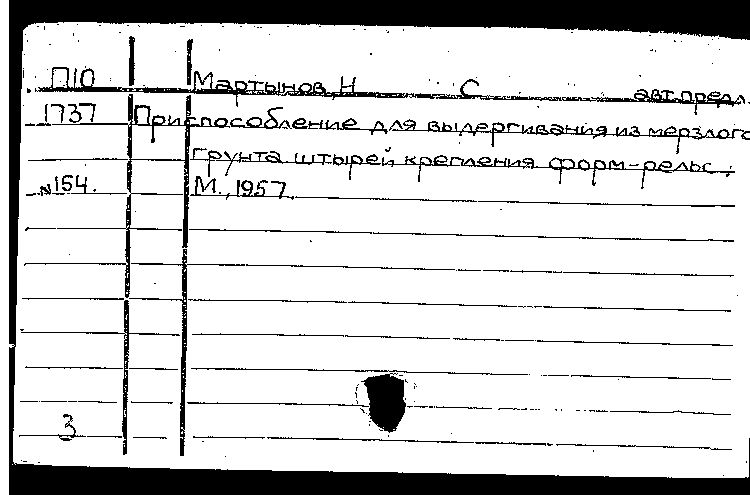 П10 Мартынов, Н С авт. предл.
1737 Приспособление для выдергивания из мерзлого
грунта штырей крепления форм-рельс.
№154. М., 1957.
3